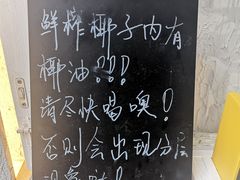 鲜榨椰子内有
椰油???
请尽快喝噢!
否则会出现分层